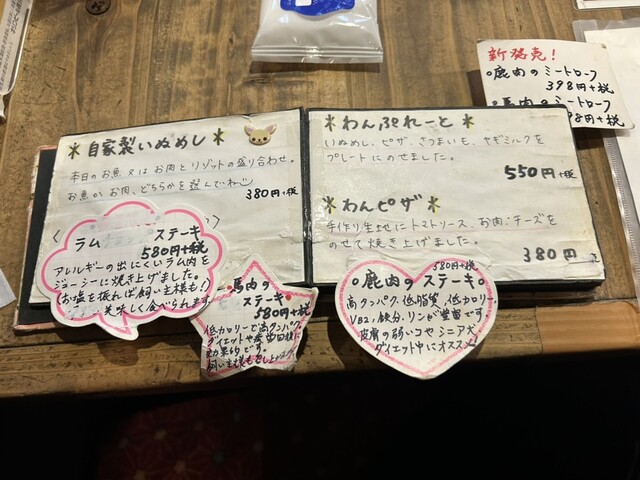 新発売!
○鹿肉のミートローフ
398円+税
○馬肉のミートローフ
398円+税
＊自家製いぬめし＊
本日のお魚又はお肉とリゾットの盛り合わせ。
お魚かお肉、どちらかを選んでね
380円+税
ラム ステーキ
580円+税
アレルギーの出にくいラム肉を
ジューシーに焼き上げました。
(お塩を振れば飼い主様も!
美味しく食べられます
馬肉の
ステーキ
580円+税
低カロリーで高タンパク。
ダイエットや疲労回復に
効果的です。
＊わんぷれーと＊
いぬめし、ピザ、さつまいも、ヤギミルクを
プレートにのせました。
550円+税
＊わんピザ＊
手作り生地にトマトソース、お肉、チーズを
のせて焼き上げました。
380円
580円+税
○鹿肉のステーキ○
高タンパク、低脂質、低カロリー。
VB2、鉄分、リンが豊富です
皮膚の弱いコやシニア犬、
ダイエット中にオススメ!